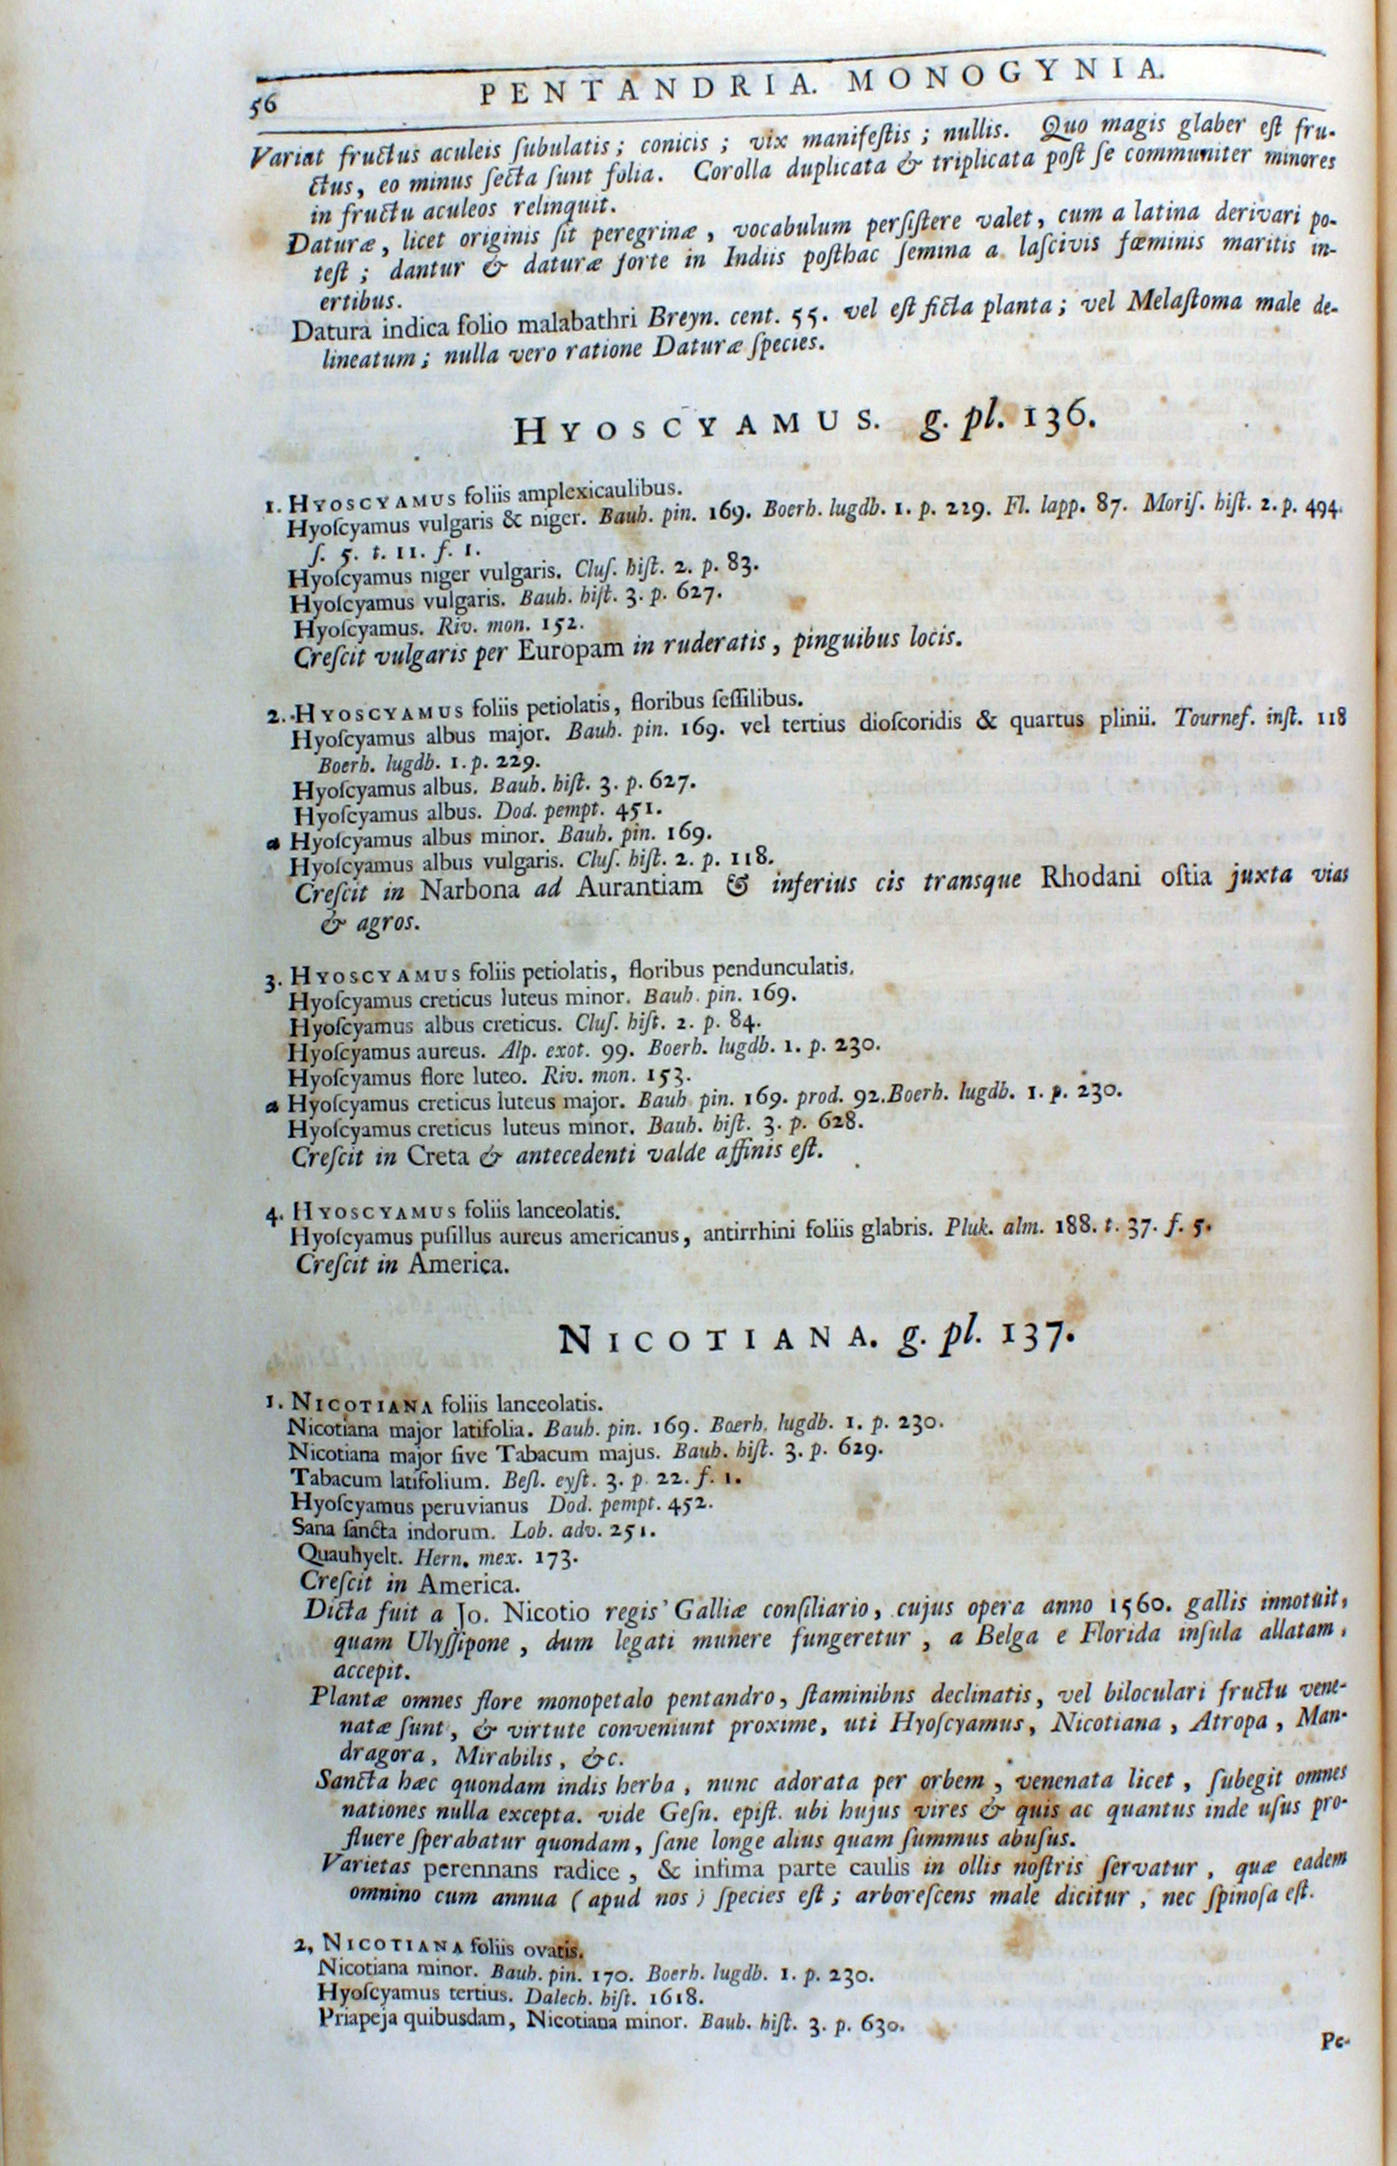 56 PENTANDRIA. MONOGYNIA.
Variat fructus aculeis ſubulatis; conicis; vix manifeſtis; nullis. Quo magis glaber eſt fru-
ctus, eo minus ſecta ſunt folia. Corolla duplicata & triplicata poſt ſe communiter minores
in fructu aculeos relinquit.
Daturæ, licet originis ſit peregrinæ, vocabulum perſiſtere valet, cum a latina derivari po-
teſt; dantur & daturæ forte in Indiis poſthac ſemina a laſcivis fœminis maritis in-
ertibus.
Datura indica folio malabathri Breyn. cent. 55. vel eſt ficta planta; vel Melaſtoma male de-
lineatum; nulla vero ratione Daturæ ſpecies.
HYOSCYAMUS. g. pl. 136.
1. HYOSCYAMUS foliis amplexicaulibus.
Hyoſcyamus vulgaris & niger. Bauh. pin. 169. Boerh. lugdb. 1. p. 229. Fl. lapp. 87. Moriſ. hiſt. 2. p. 494.
ſ. 5. t. 11. f. 1.
Hyoſcyamus niger vulgaris. Cluſ. hiſt. 2. p. 83.
Hyoſcyamus vulgaris. Bauh. hiſt. 3. p. 627.
Hyoſcyamus. Riv. mon. 152.
Creſcit vulgaris per Europam in ruderatis, pinguibus locis.
2. HYOSCYAMUS foliis petiolatis, floribus ſeſſilibus.
Hyoſcyamus albus major. Bauh. pin. 169. vel tertius dioſcoridis & quartus plinii. Tournef. inſt. 118
Boerh. lugdb. 1. p. 229.
Hyoſcyamus albus. Bauh. hiſt. 3. p. 627.
Hyoſcyamus albus. Dod. pempt. 451.
α Hyoſcyamus albus minor. Bauh. pin. 169.
Hyoſcyamus albus vulgaris. Cluſ. hiſt. 2. p. 118.
Creſcit in Narbona ad Aurantiam & inferius cis transque Rhodani oſtia juxta vias
& agros.
3. HYOSCYAMUS foliis petiolatis, floribus pendunculatis.
Hyoſcyamus creticus luteus minor. Bauh. pin. 169.
Hyoſcyamus albus creticus. Cluſ. hiſt. 2. p. 84.
Hyoſcyamus aureus. Alp. exot. 99. Boerh. lugdb. 1. p. 230.
Hyoſcyamus flore luteo. Riv. mon. 153.
α Hyoſcyamus creticus luteus major. Bauh. pin. 169. prod. 92. Boerh. lugdb. 1. p. 230.
Hyoſcyamus creticus luteus minor. Bauh. hiſt. 3. p. 628.
Creſcit in Creta & antecedenti valde affinis eſt.
4. HYOSCYAMUS foliis lanceolatis.
Hyoſcyamus puſillus aureus americanus, antirrhini foliis glabris. Pluk. alm. 188. t. 37. f. 5.
Creſcit in America.
NICOTIANA. g. pl. 137.
1. NICOTIANA foliis lanceolatis.
Nicotiana major latifolia. Bauh. pin. 169. Boerh. lugdb. 1. p. 230.
Nicotiana major ſive Tabacum majus. Bauh. hiſt. 3. p. 629.
Tabacum latifolium. Beſl. eyſt. 3. p. 22. f. 1.
Hyoſcyamus peruvianus Dod. pempt. 452.
Sana ſancta indorum. Lob. adv. 251.
Quauhyelt. Hern. mex. 173.
Creſcit in America.
Dicta fuit a Jo. Nicotio regis Galliæ conſiliario, cujus opera anno 1560. gallis innotuit,
quam Ulyſſipone, dum legati munere fungeretur, a Belga e Florida inſula allatam,
accepit.
Plantæ omnes flore monopetalo pentandro, ſtaminibus declinatis, vel biloculari fructu vene-
natæ ſunt, & virtute conveniunt proxime, uti Hyoſcyamus, Nicotiana, Atropa, Man-
dragora, Mirabilis, &c.
Sancta hæc quondam indis herba, nunc adorata per orbem, venenata licet, ſubegit omnes
nationes nulla excepta. vide Geſn. epiſt. ubi hujus vires & quis ac quantus inde uſus pro-
fluere ſperabatur quondam, ſane longe alius quam ſummus abuſus.
Varietas perennans radice, & infima parte caulis in ollis noſtris ſervatur, quæ eadem
omnino cum annua (apud nos) ſpecies eſt; arboreſcens male dicitur, nec ſpinoſa eſt.
2, NICOTIANA foliis ovatis.
Nicotiana minor. Bauh. pin. 170. Boerh. lugdb. 1. p. 230.
Hyoſcyamus tertius. Dalech. hiſt. 1618.
Priapeja quibusdam, Nicotiana minor. Bauh. hiſt. 3. p. 630.
Pe-